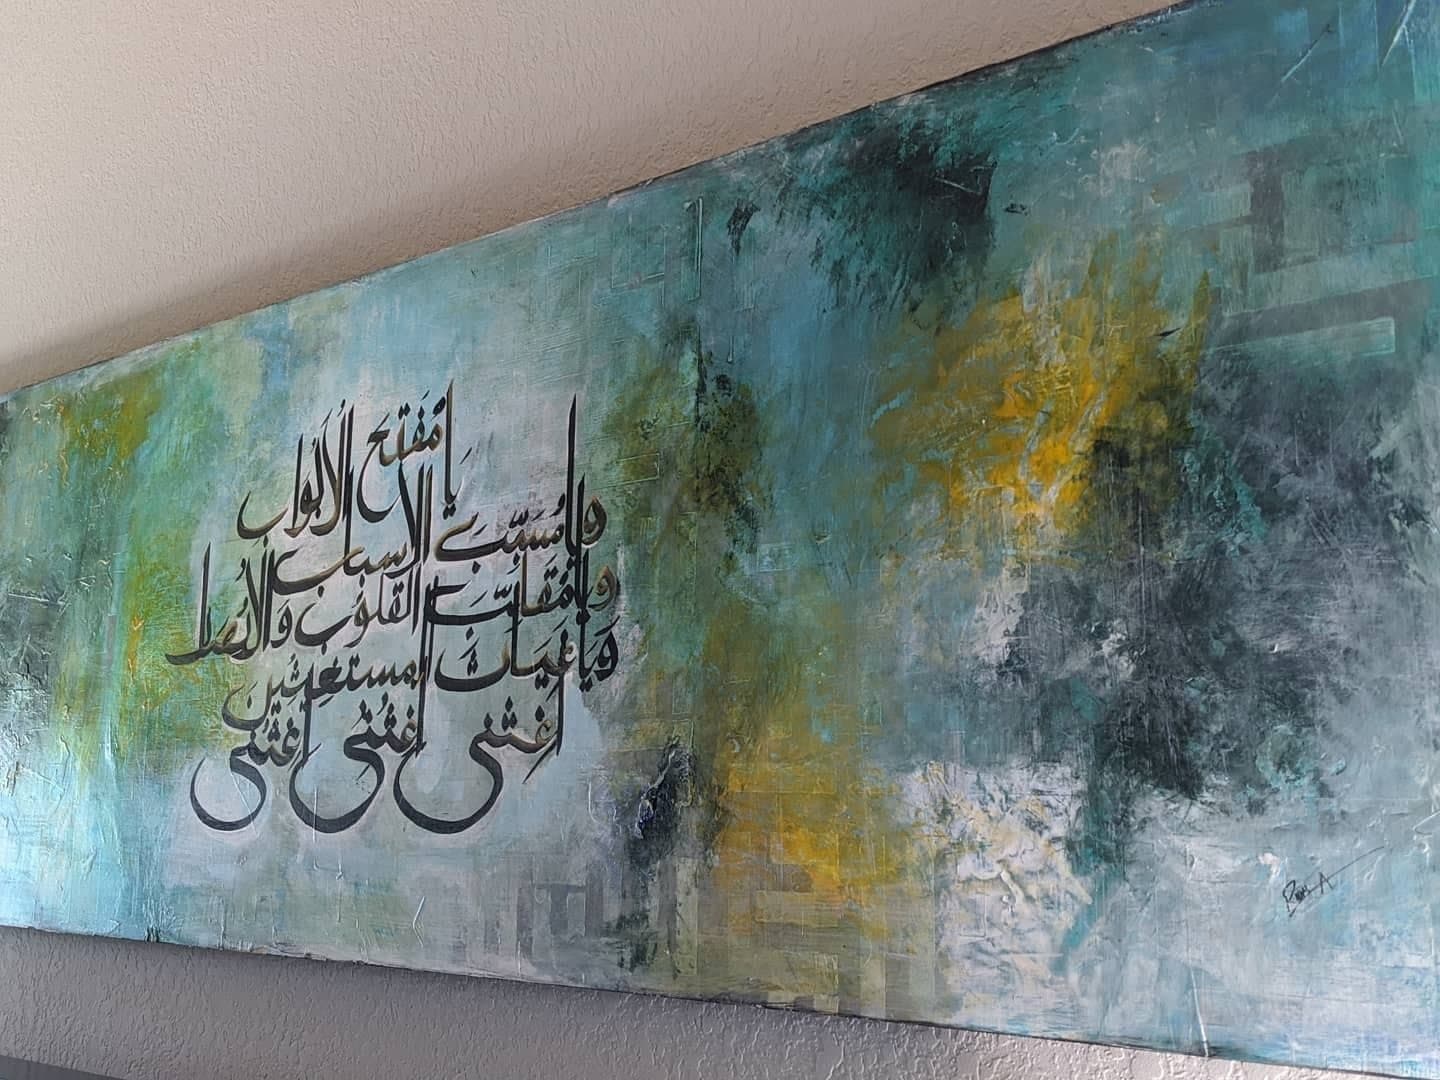 يَا مُفَتِّحَ الْأَبْوَاب
وَيَا مُسَبِّبَ الْأَسباب
وَيَا مُقَلِّبَ الْقُلُوب وَالْأَبْصَار
وَيَا غِيَاثَ الْمُستَغِيثِين
اَغِثْنِي اَغِثْنِي اَغِثْنِي